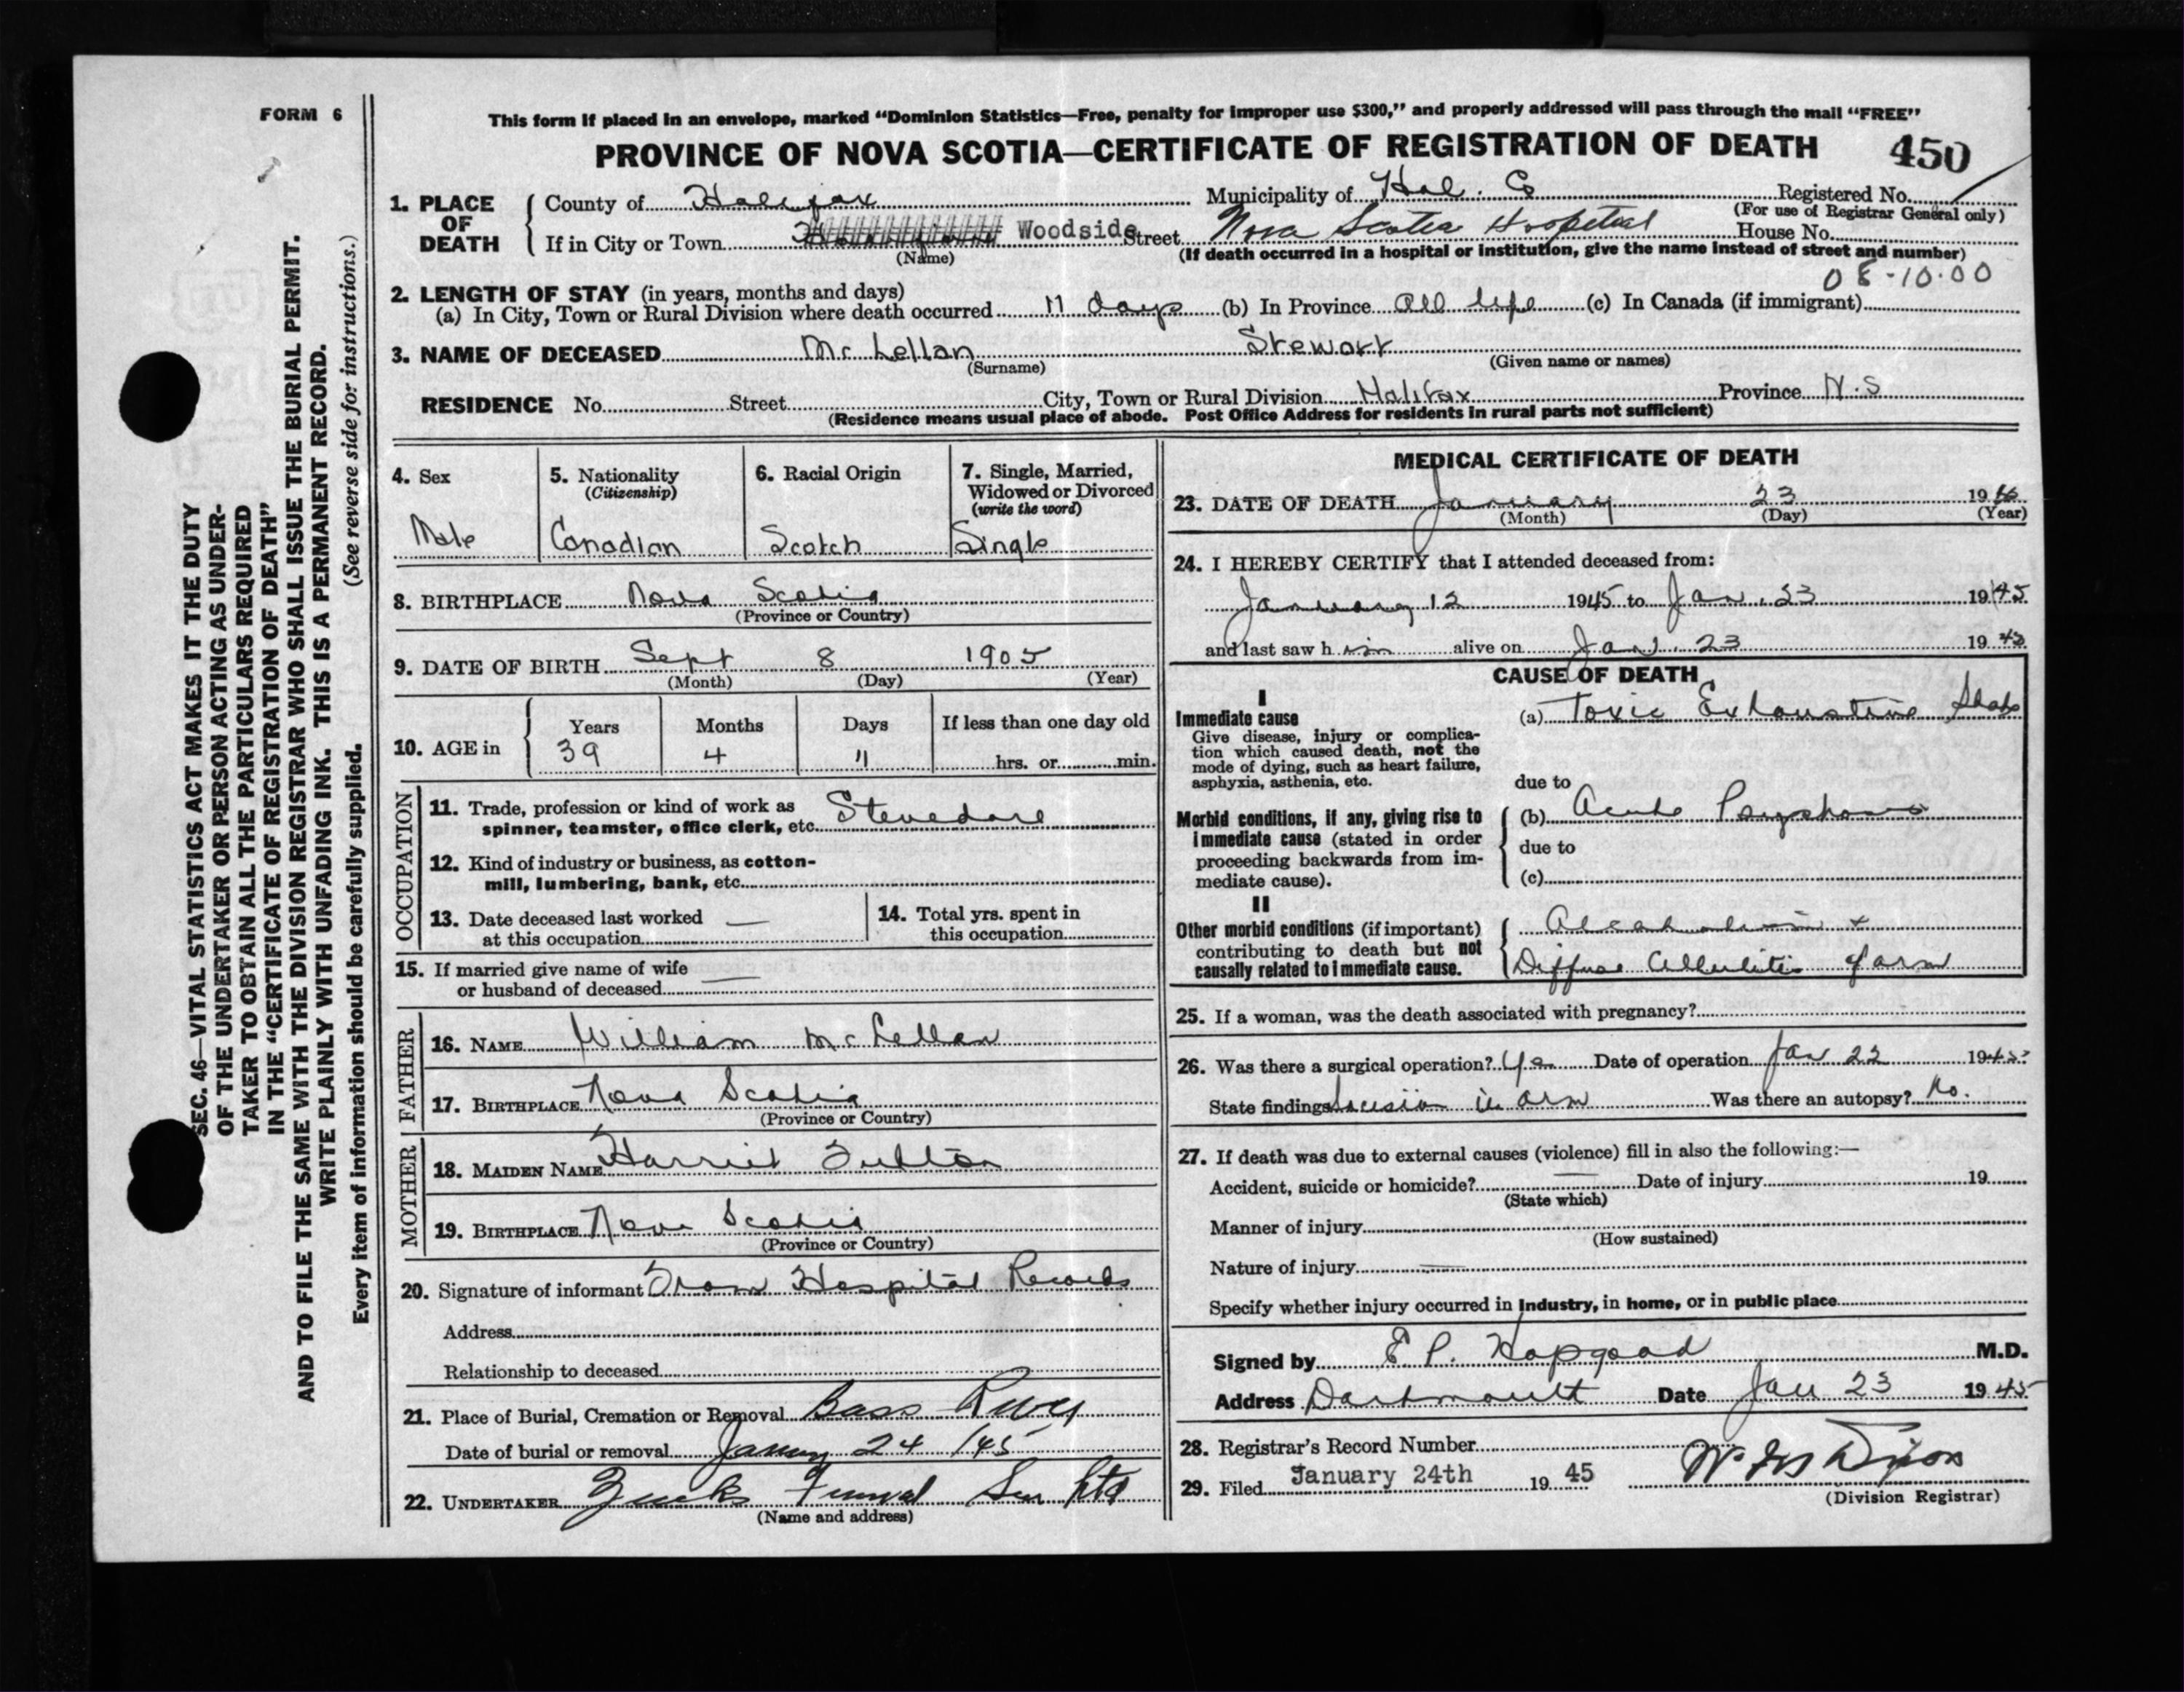 FORM 6
This form if placed in an envelope, marked "Dominion Statistics—Free, penalty for improper use $300," and properly addressed will pass through the mail "FREE"
PROVINCE OF NOVA SCOTIA—CERTIFICATE OF REGISTRATION OF DEATH 450
SEC. 46—VITAL STATISTICS ACT MAKES IT THE DUTY
OF THE UNDERTAKER OR PERSON ACTING AS UNDER-
TAKER TO OBTAIN ALL THE PARTICULARS REQUIRED
IN THE "CERTIFICATE OF REGISTRATION OF DEATH"
AND TO FILE THE SAME WITH THE DIVISION REGISTRAR WHO SHALL ISSUE THE BURIAL PERMIT.
WRITE PLAINLY WITH UNFADING INK. THIS IS A PERMANENT RECORD.
Every item of information should be carefully supplied. (See reverse side for instructions.)
1. PLACE OF DEATH
County of Halifax Municipality of Hal. Co Registered No.
(For use of Registrar General only)
If in City or Town Woodside Street Nova Scotia Hospital House No.
(Name) (If death occurred in a hospital or institution, give the name instead of street and number)
08-10-00
2. LENGTH OF STAY (in years, months and days)
(a) In City, Town or Rural Division where death occurred 11 days (b) In Province All life (c) In Canada (if immigrant)
3. NAME OF DECEASED McLellan Stewart
(Surname) (Given name or names)
RESIDENCE No. Street City, Town or Rural Division Halifax Province N.S
(Residence means usual place of abode. Post Office Address for residents in rural parts not sufficient)
4. Sex
Male
5. Nationality
(Citizenship)
Canadian
6. Racial Origin
Scotch
7. Single, Married,
Widowed or Divorced
(write the word)
Single
8. BIRTHPLACE Nova Scotia
(Province or Country)
9. DATE OF BIRTH Sept 8 1905
(Month) (Day) (Year)
10. AGE in
Years Months Days If less than one day old
39 4 11 hrs. or min.
OCCUPATION
11. Trade, profession or kind of work as
spinner, teamster, office clerk, etc. Stevedore
12. Kind of industry or business, as cotton-
mill, lumbering, bank, etc.
13. Date deceased last worked —
at this occupation
14. Total yrs. spent in
this occupation
15. If married give name of wife —
or husband of deceased
FATHER
16. NAME William McLellan
17. BIRTHPLACE Nova Scotia
(Province or Country)
MOTHER
18. MAIDEN NAME Harriet Fulton
19. BIRTHPLACE Nova Scotia
(Province or Country)
20. Signature of informant From Hospital Records
Address
Relationship to deceased
21. Place of Burial, Cremation or Removal Bass River
Date of burial or removal January 24 /45
22. UNDERTAKER Funeral Ltd
(Name and address)
MEDICAL CERTIFICATE OF DEATH
23. DATE OF DEATH January 23 19
(Month) (Day) (Year)
24. I HEREBY CERTIFY that I attended deceased from:
January 12 1945 to Jan. 23 1945
and last saw him alive on Jan. 23 1945
CAUSE OF DEATH
I
Immediate cause
Give disease, injury or complica-
tion which caused death, not the
mode of dying, such as heart failure,
asphyxia, asthenia, etc.
(a) Toxic Exhaustive State
due to
Morbid conditions, if any, giving rise to
immediate cause (stated in order
proceeding backwards from im-
mediate cause).
(b) Acute Psychosis
due to
(c)
II
Other morbid conditions (if important)
contributing to death but not
causally related to immediate cause.
Alcoholism +
Diffuse Cellulitis of arm
25. If a woman, was the death associated with pregnancy?
26. Was there a surgical operation? Yes Date of operation Jan 22 1945
State findings Incision in arm Was there an autopsy? No.
27. If death was due to external causes (violence) fill in also the following:—
Accident, suicide or homicide? — Date of injury 19
(State which)
Manner of injury
(How sustained)
Nature of injury —
Specify whether injury occurred in Industry, in home, or in public place
Signed by E P. Hopgood M.D.
Address Dartmouth Date Jan 23 1945
28. Registrar's Record Number
29. Filed January 24th 19 45 Dixon
(Division Registrar)